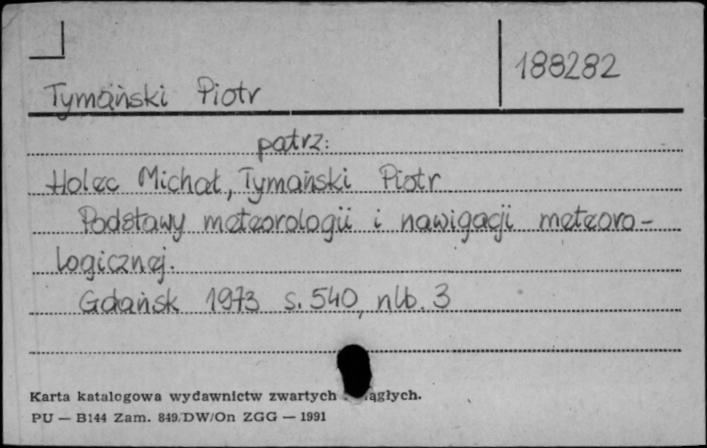 188282
Tymański Piotr
patrz:
Holec Michał, Tymański Piotr
Podstawy meteorologii i nawigacji meteoro-
logicznej.
Gdańsk 1973 s. 540, nlb. 3
Karta katalogowa wydawnictw zwartych ągłych.
PU — B144 Zam. 849/DW/On ZGG — 1991